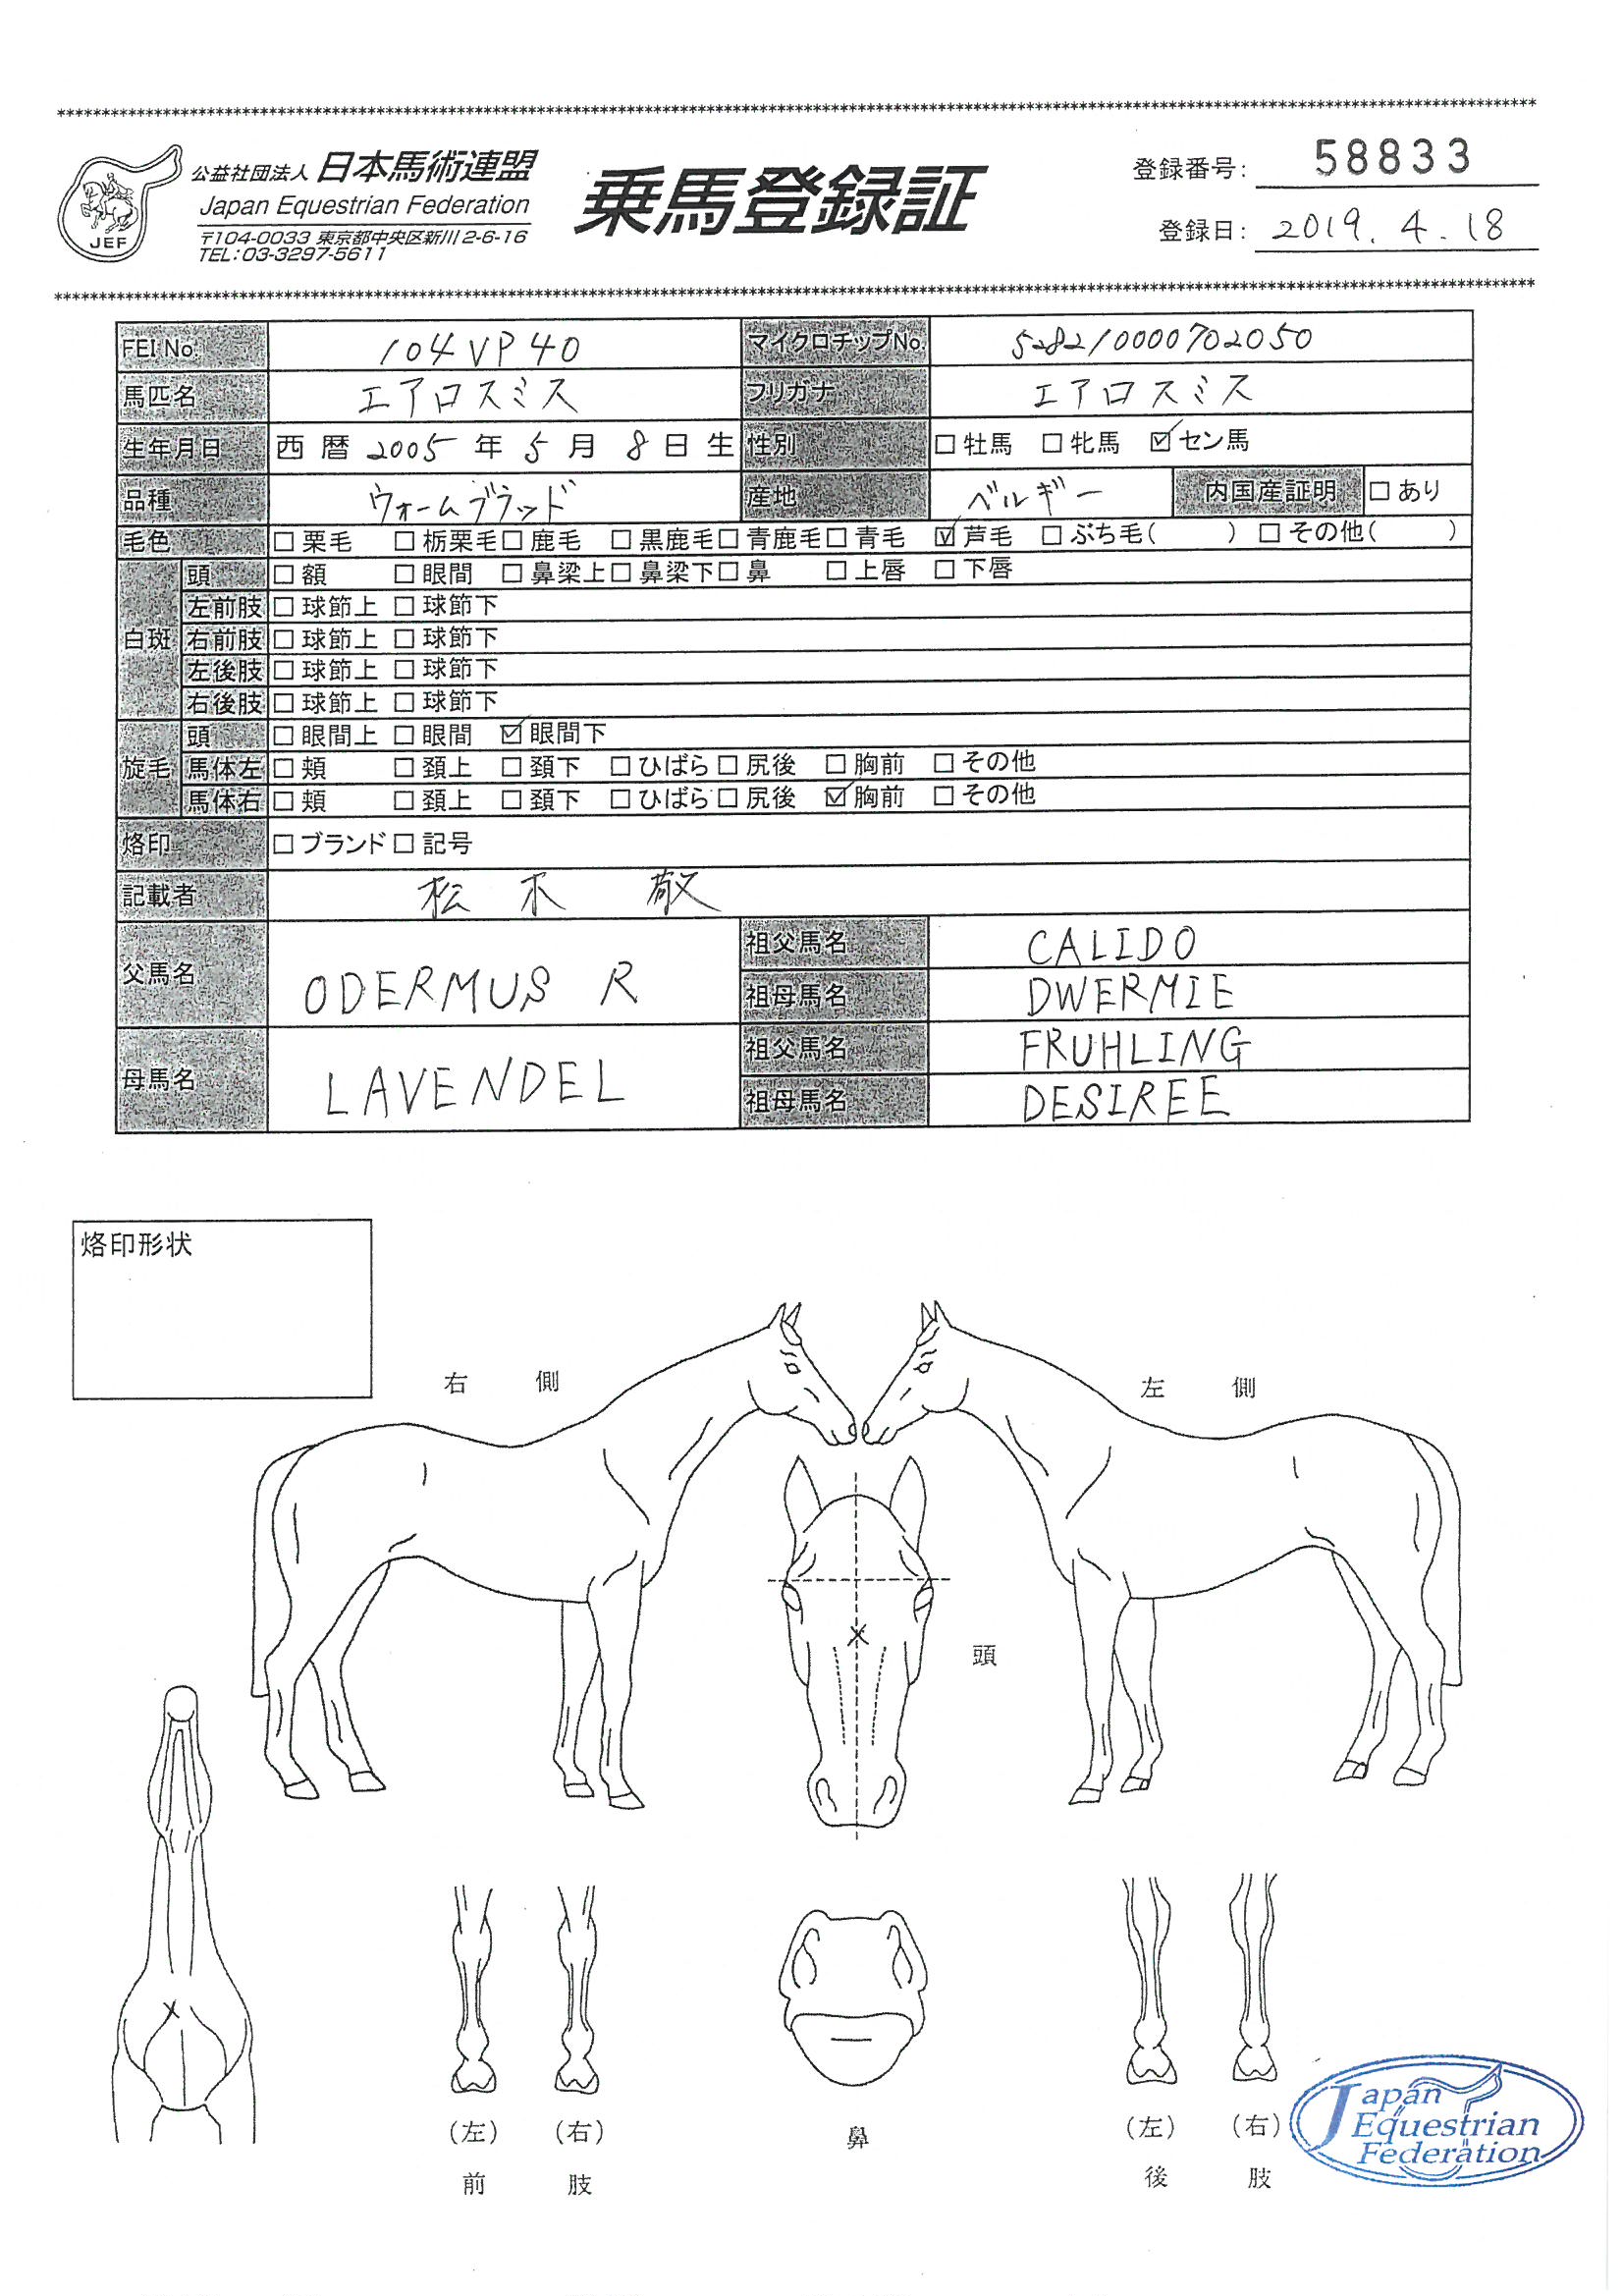 ****************************************************************
公益社団法人 日本馬術連盟
Japan Equestrian Federation
〒104-0033 東京都中央区新川2-6-16
TEL:03-3297-5611
JEF
乗馬登録証
登録番号: 58833
登録日: 2019.4.18
****************************************************************
FEI No. 104VP40 マイクロチップNo. 528210000702050
馬匹名 エアロスミス フリガナ エアロスミス
生年月日 西暦 2005 年 5 月 8 日生 性別 □牡馬 □牝馬 ☑セン馬
品種 ウォームブラッド 産地 ベルギー 内国産証明 □あり
毛色 □栗毛 □栃栗毛 □鹿毛 □黒鹿毛 □青鹿毛 □青毛 ☑芦毛 □ぶち毛( ) □その他( )
白斑 頭 □額 □眼間 □鼻梁上 □鼻梁下 □鼻 □上唇 □下唇
左前肢 □球節上 □球節下
右前肢 □球節上 □球節下
左後肢 □球節上 □球節下
右後肢 □球節上 □球節下
旋毛 頭 □眼間上 □眼間 ☑眼間下
馬体左 □頬 □頚上 □頚下 □ひばら □尻後 □胸前 □その他
馬体右 □頬 □頚上 □頚下 □ひばら □尻後 ☑胸前 □その他
烙印 □ブランド □記号
記載者 松木 敬
父馬名 ODERMUS R 祖父馬名 CALIDO
祖母馬名 DWERMIE
母馬名 LAVENDEL 祖父馬名 FRUHLING
祖母馬名 DESIREE
烙印形状
右 側 左 側
頭
(左) (右) 鼻 (左) (右)
前 肢 後 肢
Japan
Equestrian
Federation